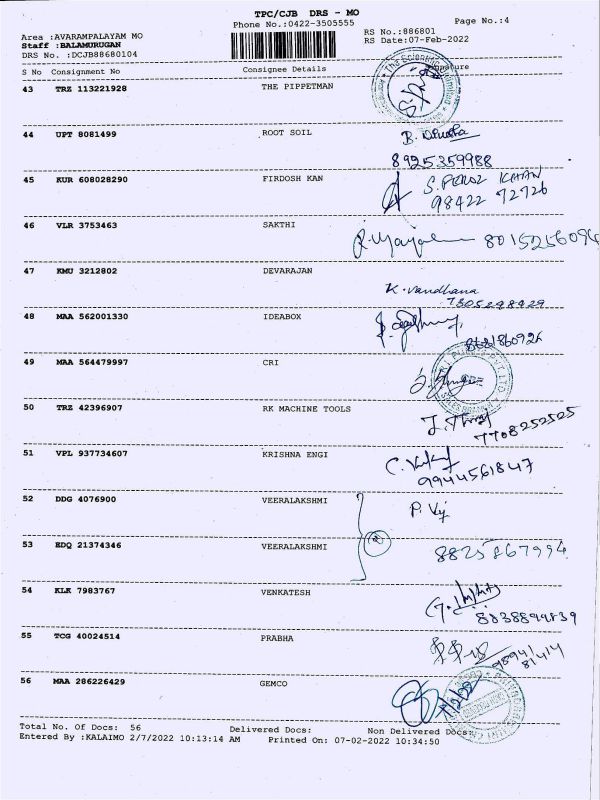 TPC/CJB DRS - MO
Phone No.:0422-3505555
Page No.:4
Area :AVARAMPALAYAM MO
RS No.:886801
Staff :BALAMURUGAN
RS Date:07-Feb-2022
DRS No. :DCJB88680104
S No Consignment No Consignee Details
43 TRZ 113221928 THE PIPPETMAN
44 UPT 8081499 ROOT SOIL
8925359988
45 KUR 608028290 FIRDOSH KAN
S. PEROZ KHAN
98422 72726
46 VLR 3753463 SAKTHI
8015256094
47 KMU 3212802 DEVARAJAN
K. vandhana
48 MAA 562001330 IDEABOX
49 MAA 564479997 CRI
50 TRZ 42396907 RK MACHINE TOOLS
7708252525
51 VPL 937734607 KRISHNA ENGI
9944561847
52 DDG 4076900 VEERALAKSHMI
53 EDQ 21374346 VEERALAKSHMI
8825867994
54 KLK 7983767 VENKATESH
55 TCG 40024514 PRABHA
56 MAA 286226429 GEMCO
Total No. Of Docs: 56 Delivered Docs: Non Delivered Docs:
Entered By :KALAIMO 2/7/2022 10:13:14 AM Printed On: 07-02-2022 10:34:50